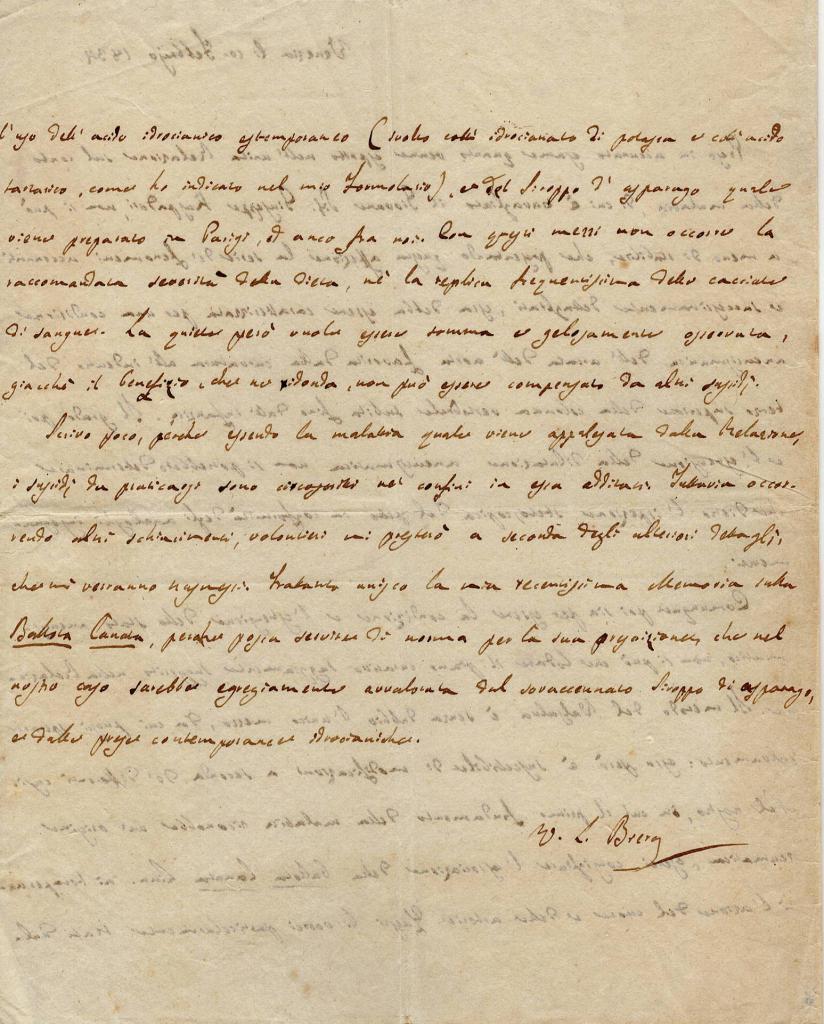 l'uso dell'acido idrocianico estemporaneo (svolto coll'idrocianato di potassa e coll'acido
tartarico, come ho indicato nel mio Formolario), e del Siroppo d'asparago quale
viene preparato in Parigi, ed anco fra noi. Con questi mezzi non occorre la
raccomandata severità della dieta, nè la replica frequentissima delle cacciate
di sangue. La quiete però vuole essere somma e gelosamente osservata,
giacchè il beneficio, che ne ridonda, non può essere compensato da altri sussidj.
Scrivo poco, perchè essendo la malattia quale viene appalesata dalla Relazione,
i sussidj da praticarsi sono circoscritti nei confini in essa additati. Tuttavia occor-
rendo altri schiarimenti, volontieri mi presterò a seconda degli ulteriori dettagli,
che mi verranno trasmessi. Frattanto unisco la mia recentissima Memoria sulla
Ballota Lanata, perchè possa servire di norma per la sua propinazione, che nel
nostro caso sarebbe egregiamente avvalorata dal sovraccennato Siroppo di asparago,
e dalle prese contemporanee idrocianiche.
V. L. Brera